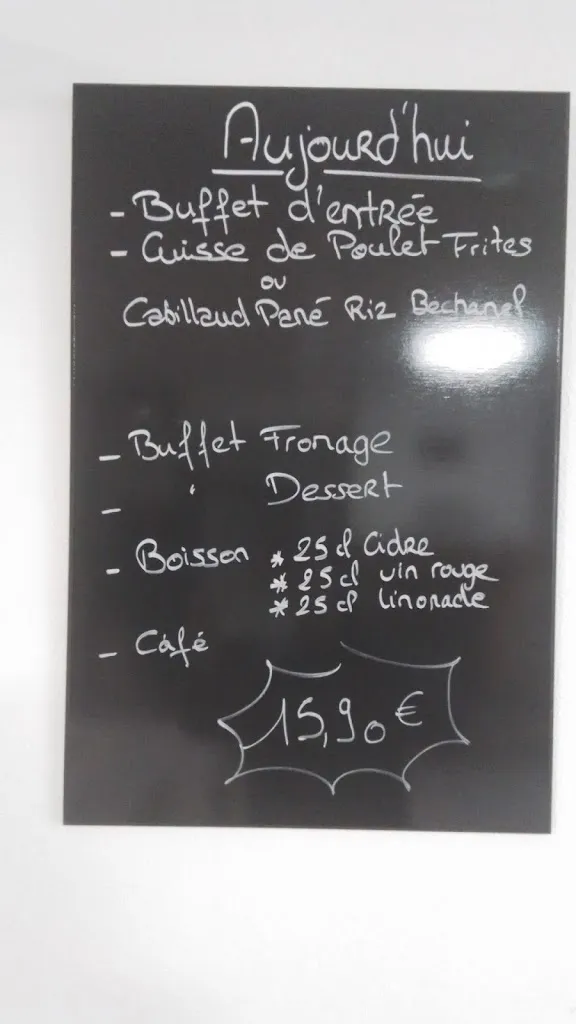 Aujourd'hui
- Buffet d'entrée
- Cuisse de Poulet Frites
ou
Cabillaud Pané Riz Bechamel
- Buffet Fromage
- " Dessert
- Boisson * 25 cl Cidre
* 25 cl vin rouge
* 25 cl limonade
- Café
15,90 €